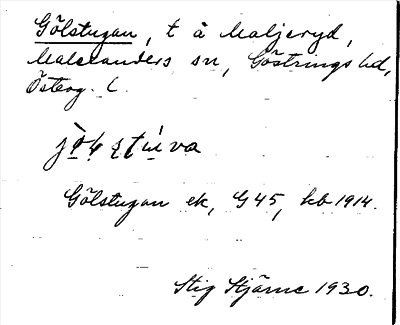 Gölstugan, t å Maljeryd,
Malexanders sn, Göstrings hd,
Österg. l.
Gölstugan ek, G45, kb 1914.
Stig Hjärne 1930.